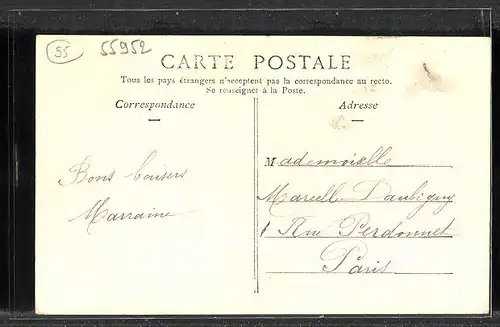 55
55952
CARTE POSTALE
Tous les pays étrangers n'acceptent pas la correspondance au recto.
Se renseigner à la Poste.
Correspondance
Adresse
Bons baisers
Marraine
Mademoiselle
Marcelle Daubigny
1 Rue Perdonnet
Paris